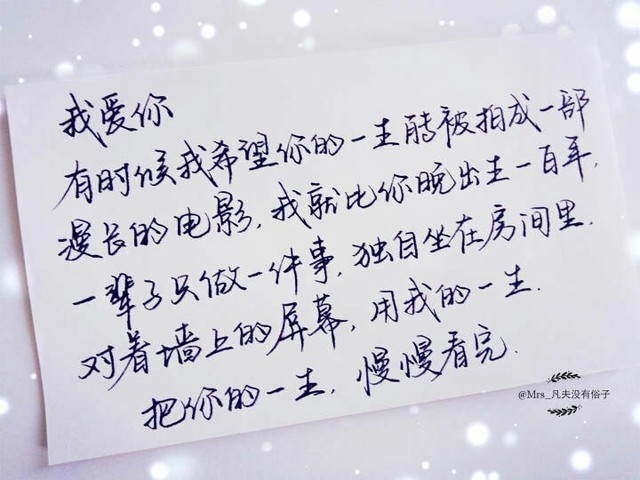 我爱你
有时候我希望你的一生能被拍成一部
漫长的电影,我就比你晚出生一百年,
一辈子只做一件事,独自坐在房间里.
对着墙上的屏幕,用我的一生.
把你的一生,慢慢看完.
@Mrs_凡夫没有俗子